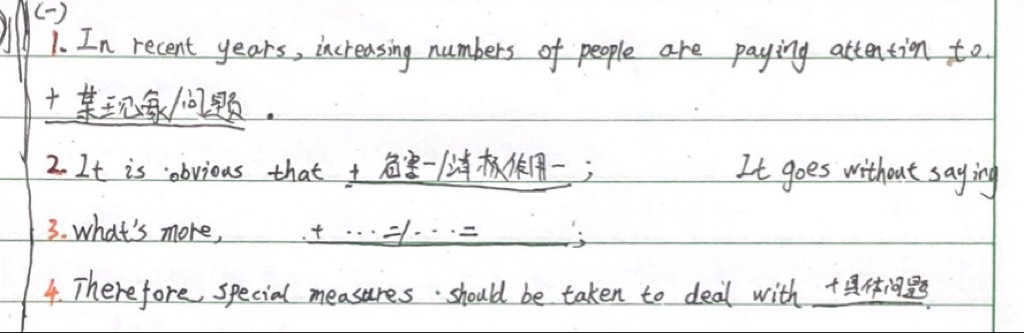 (一)
1. In recent years, increasing numbers of people are paying attention to
+ 某现象/问题.
2. It is obvious that + 危害一/消极作用一; It goes without saying
3. What's more, + …二/…二;
4. Therefore, special measures should be taken to deal with +具体问题.